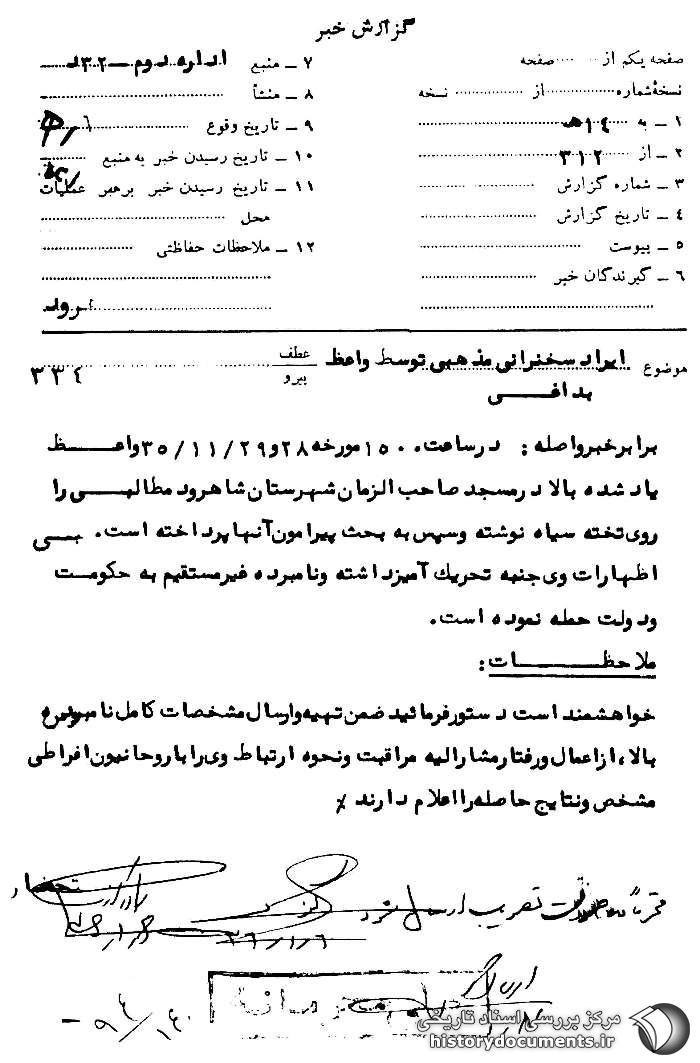 گزارش خبر
صفحه یکم از ..... صفحه
نسخهٔ شماره .......... از .......... نسخه
۱ ــ به ۱٤هـ
۲ ــ از ۳۱۲
۳ ــ شماره گزارش
٤ ــ تاریخ گزارش
۵ ــ پیوست
٦ ــ گیرندگان خبر
۷ ــ منبع اداره دوم ــ ۳۲۰ـد
۸ ــ منشأ
۹ ــ تاریخ وقوع
۱۰ ــ تاریخ رسیدن خبر به منبع
۱۱ ــ تاریخ رسیدن خبر برهبر عملیات
محل
۱۲ ــ ملاحظات حفاظتی
موضوع ایراد سخنرانی مذهبی توسط واعظ
بداغـــی
عطف
پیرو
۳۳٤
برابر خبر واصله : در ساعت ۱۵۰۰ مورخه ۲۸ و ۳۵/۱۱/۲۹ واعـــظ
یاد شده بالا در مسجد صاحب الزمان شهرستان شاهرود مطالبـــی را
روی تخته سیاه نوشته و سپس به بحث پیرامون آنها پرداخته است .
اظهارات وی جنبه تحریك آمیز داشته و نامبرده غیر مستقیم به حکومـت
و دولت حمله نموده است .
ملاحظـــــات :
خواهشمند است دستور فرمائید ضمن تهیه و ارسال مشخصات کامل نامبرده
بالا ، از اعمال و رفتار مشارالیه مراقبت و نحوه ارتباط وی را با روحانیون افراطی
مشخص و نتایج حاصله را اعلام دارند ٪
۳٦/۱/٦
مرکز بررسی اسناد تاریخی
historydocuments.ir